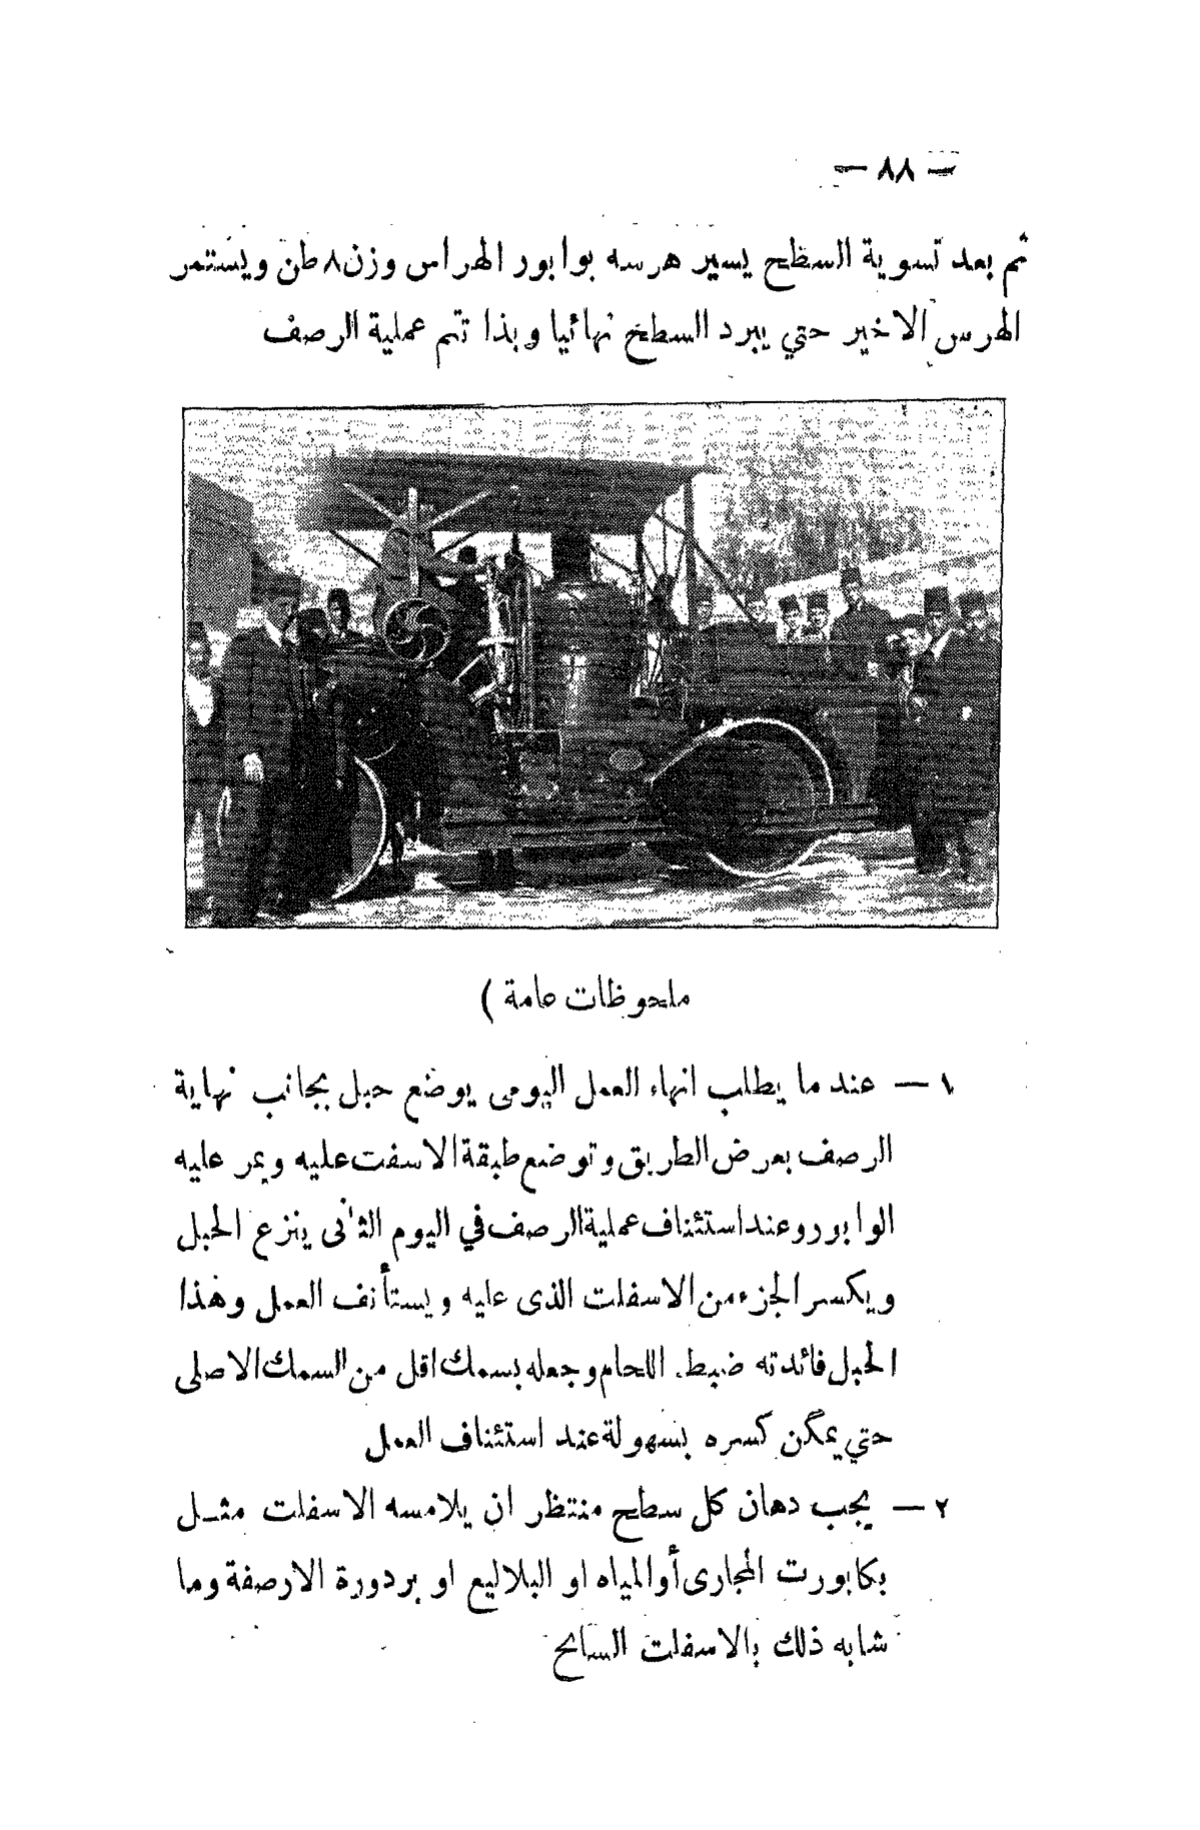 — ٨٨ —
ثم بعد تسوية السطح يسير هرسه بوابور الهراس وزن ٨ طن ويستمر
الهرس الاخير حتي يبرد السطح نهائيا وبذا تتم عملية الرصف
ملحوظات عامة )
١ — عند ما يطلب انهاء العمل اليومى يوضع حبل بجانب نهاية
الرصف بعرض الطريق وتوضع طبقة الاسفت عليه ويمر عليه
الوابور وعند استئناف عملية الرصف في اليوم الثانى ينزع الحبل
ويكسر الجزء من الاسفلت الذى عليه ويستأنف العمل وهذا
الحبل فائدته ضبط اللحام وجعله بسمك اقل من السمك الاصلى
حتي يمكن كسره بسهولة عند استئناف العمل
٢ — يجب دهان كل سطح منتظر ان يلامسه الاسفلت مثل
بكابورت المجارى أو المياه او البلاليع او بردورة الارصفة وما
شابه ذلك بالاسفلت السايح